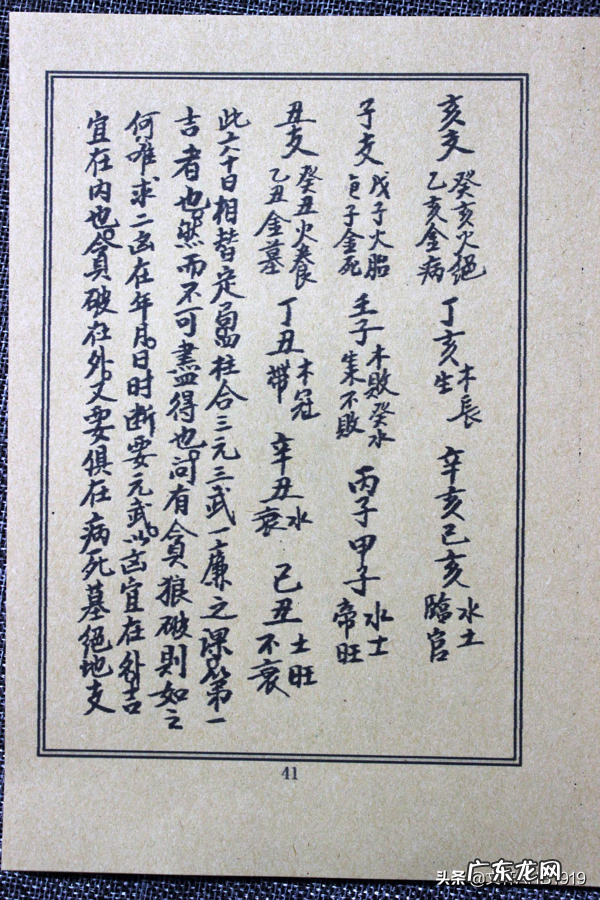 亥支 癸亥火絕 乙亥金病 丁亥木長生 辛亥己亥水土臨官
子支 戊子火胎 子金死 壬子木敗癸水 不敗 丙子甲子水土帝旺
丑支 癸丑火養 乙丑金墓 丁丑木冠帶 辛丑水衰 己丑土旺不衰
此六十日相替定局 柱合三元三武一廉之課 第一
吉者也然而不可盡得也问有貪狼破則如之
何唯求二凶在年月日时断要元武以凶宜在外吉
宜在内也貪破在外又要俱在病死墓絕地支
41
头条 919
广东龙网